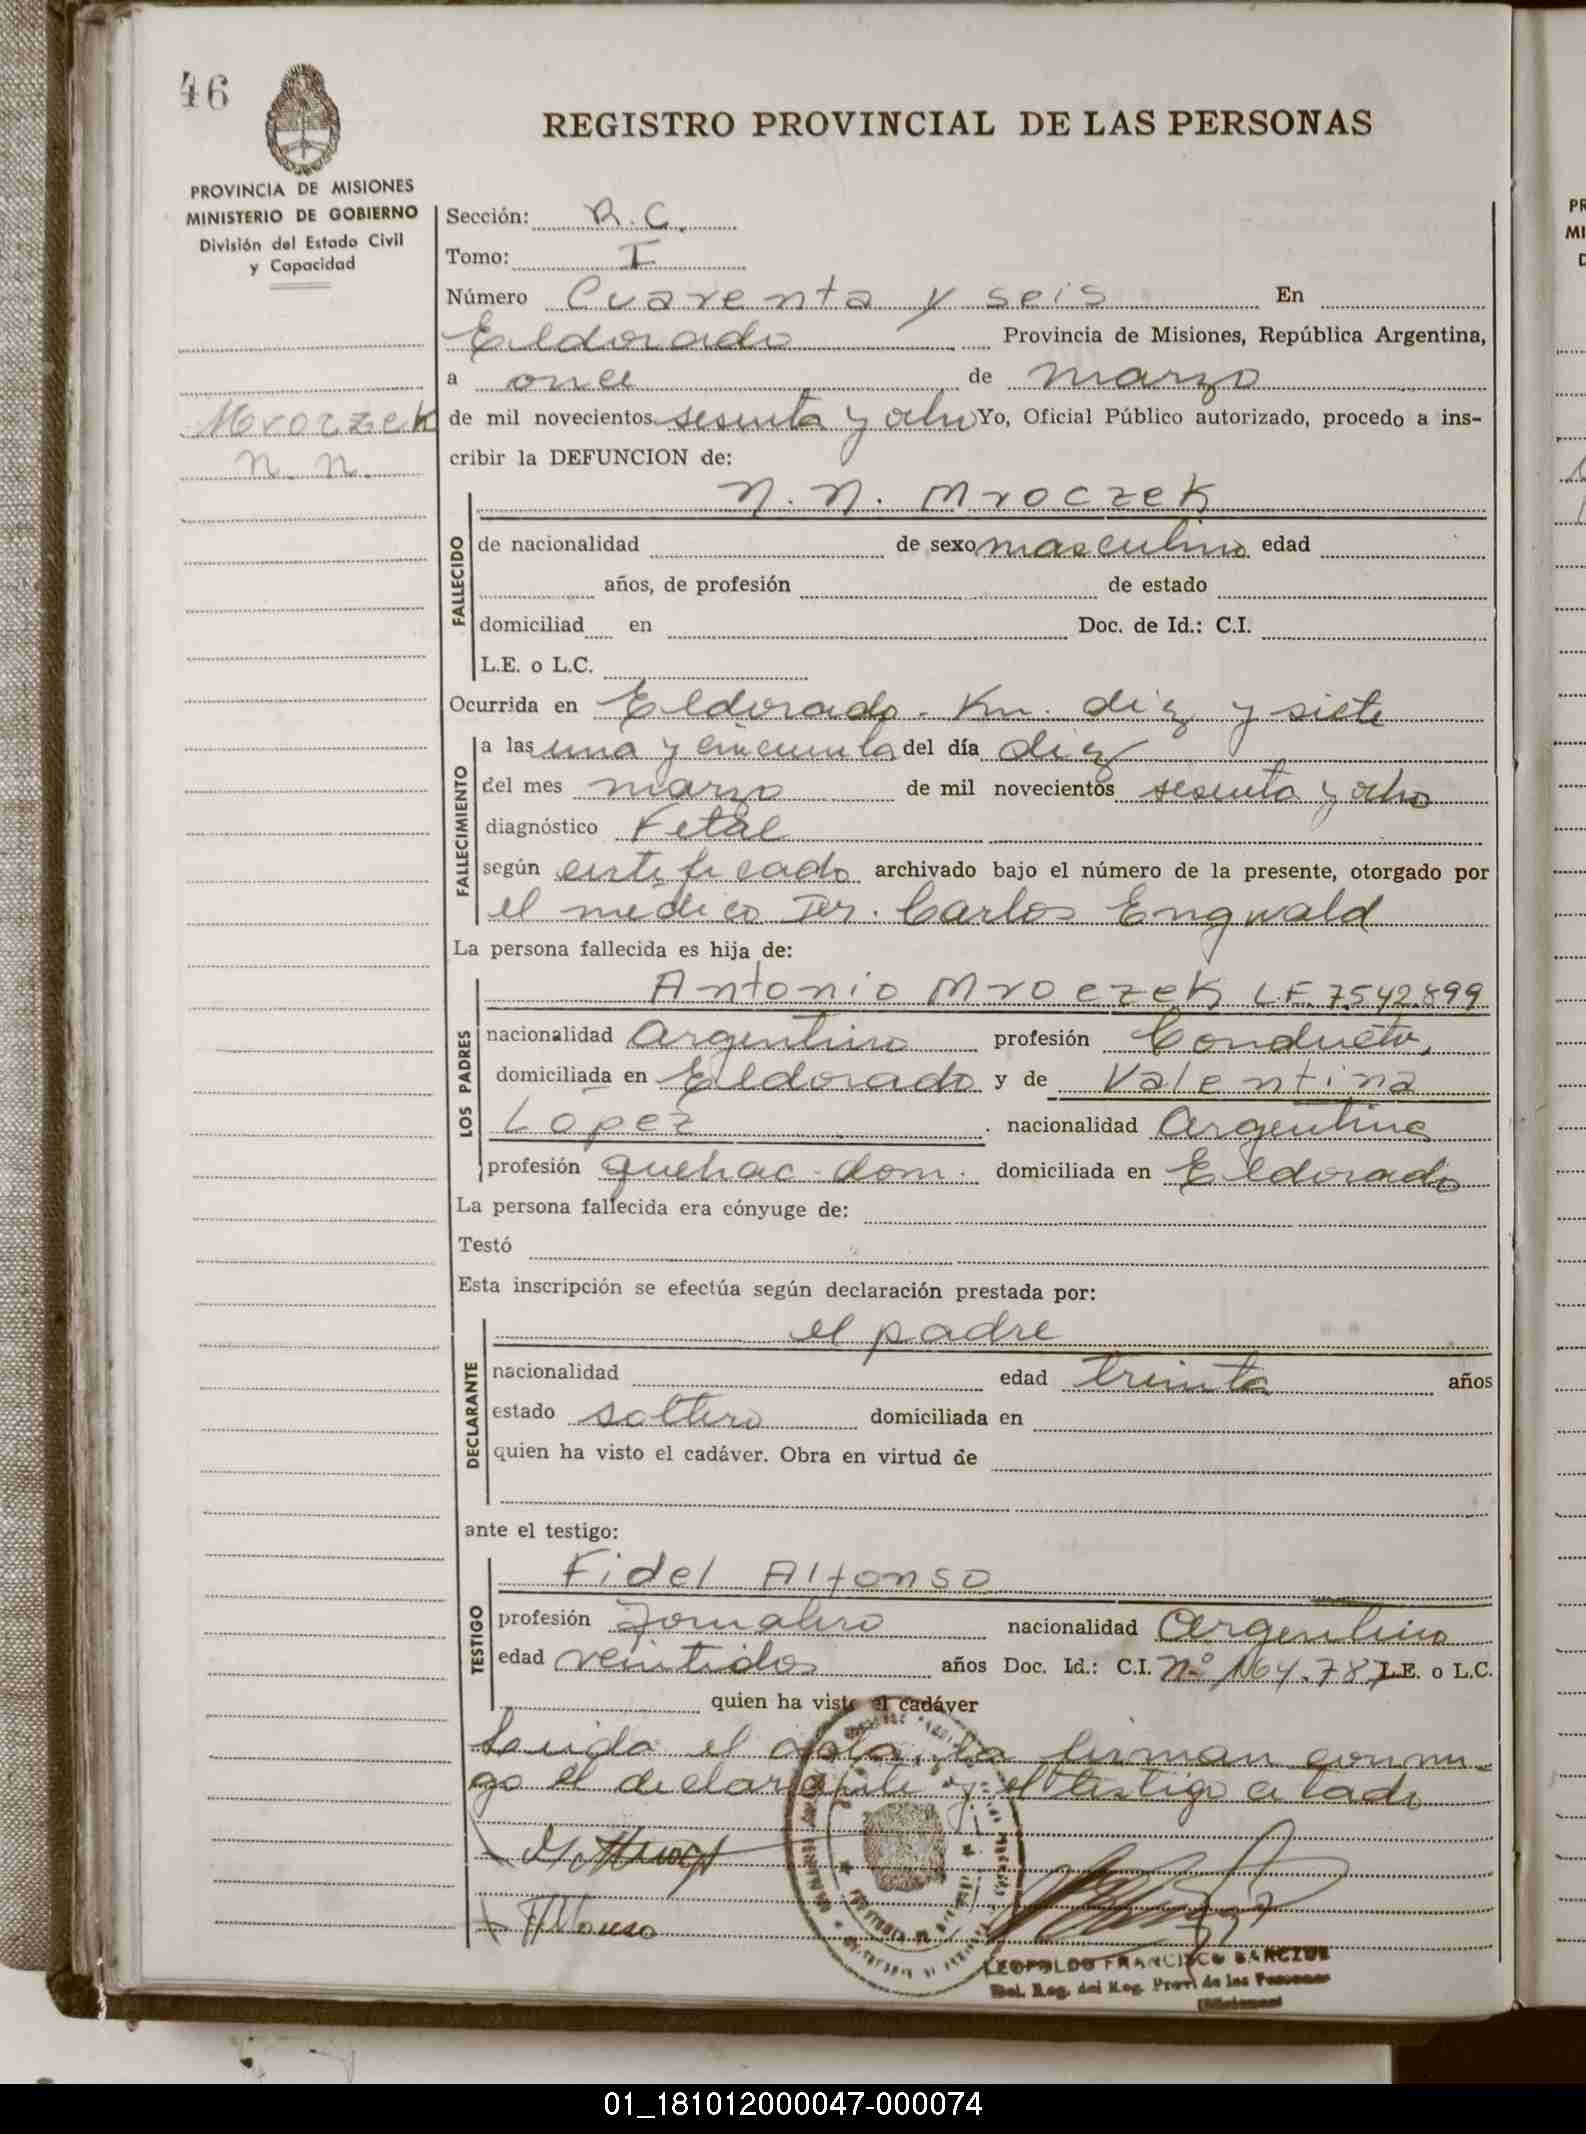 46
REGISTRO PROVINCIAL DE LAS PERSONAS
PROVINCIA DE MISIONES
MINISTERIO DE GOBIERNO
División del Estado Civil
y Capacidad
Mroczek
N. N.
Sección: R. C.
Tomo: I
Número Cuarenta y seis En
Eldorado Provincia de Misiones, República Argentina,
a once de marzo
de mil novecientos sesenta y ocho Yo, Oficial Público autorizado, procedo a ins-
cribir la DEFUNCION de:
N. N. Mroczek
FALLECIDO
de nacionalidad de sexo masculino edad
años, de profesión de estado
domiciliad en Doc. de Id.: C.I.
L.E. o L.C.
Ocurrida en Eldorado - Km. diez y siete
FALLECIMIENTO
a las una y cincuenta del día diez
del mes marzo de mil novecientos sesenta y ocho
diagnóstico Fetal
según certificado archivado bajo el número de la presente, otorgado por
el medico Dr. Carlos Engwald
La persona fallecida es hija de:
LOS PADRES
Antonio Mroczek L.E. 7.542.899
nacionalidad argentino profesión Conductor,
domiciliada en Eldorado y de Valentina
Lopez. nacionalidad argentina
profesión quehac-dom. domiciliada en Eldorado
La persona fallecida era cónyuge de:
Testó
Esta inscripción se efectúa según declaración prestada por:
DECLARANTE
el padre
nacionalidad edad treinta años
estado soltero domiciliada en
quien ha visto el cadáver. Obra en virtud de
ante el testigo:
TESTIGO
Fidel Alfonso
profesión Jornalero nacionalidad Argentino
edad veintidos años Doc. Id.: C.I. Nº 164.787 L.E. o L.C.
quien ha visto el cadáver
Leida el acta, la firman conmi-
go el declarante y el testigo citado
LEOPOLDO FRANCISCO BARCZUK
Del. Reg. del Reg. Prov. de las Personas
(Misiones)
01_181012000047-000074